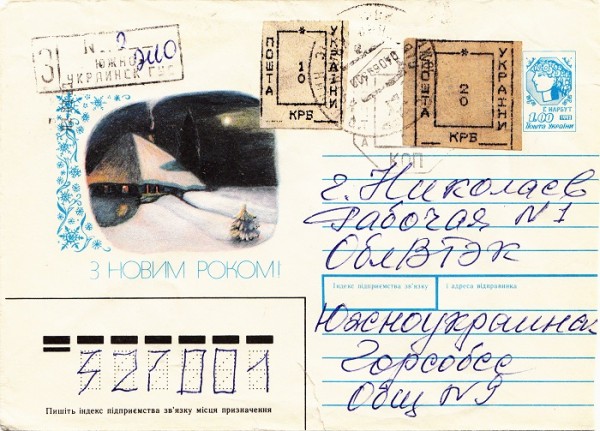 З
N
ЮЖНО-
УКРАИНСК
ПОШТА
*
1
0
КРВ
УКРАЇНИ
ПОШТА
*
2
0
КРВ
УКРАЇНИ
КОП
Г. НАРБУТ
1.00
Пошта України
З НОВИМ РОКОМ!
г. Николаев
Рабочая N 1
ОблВТЭК
Індекс підприємства зв'язку
і адреса відправника
Южноукраинск
Горсобес
Общ N9
327001
Пишіть індекс підприємства зв'язку місця призначення